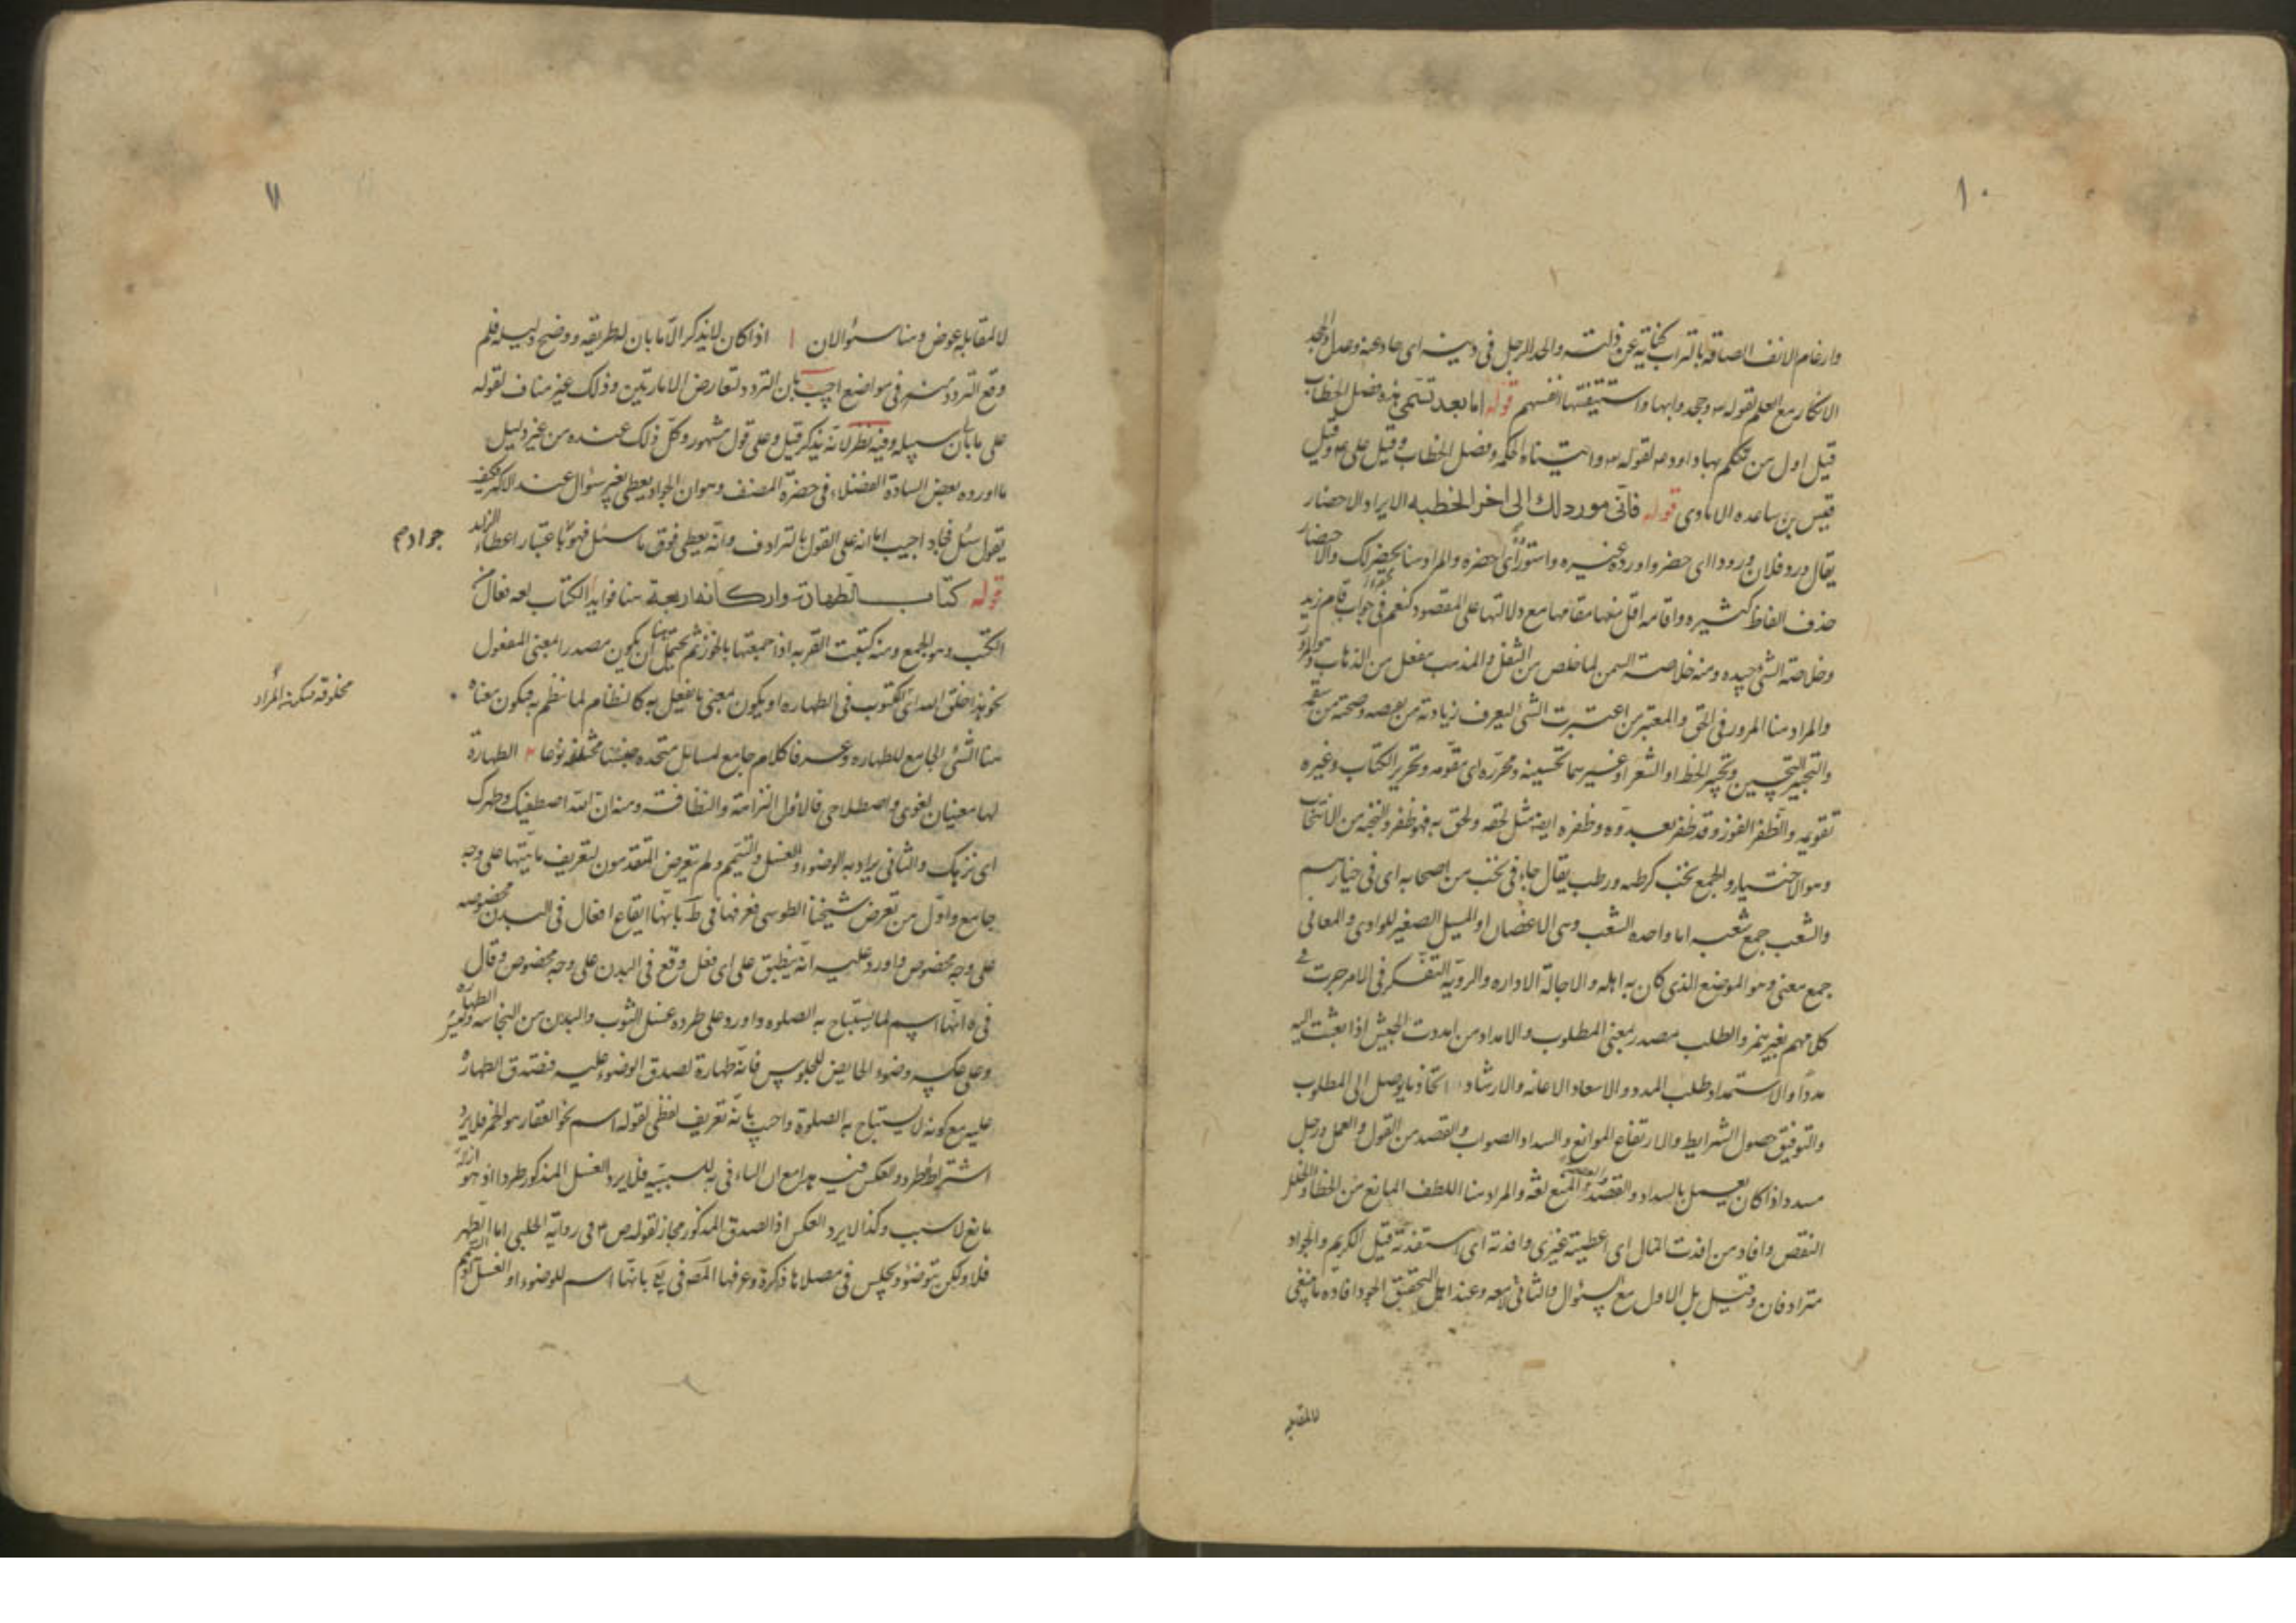 ١٠
وارغام الانف الصاقه بالتراب كناية عن ذلته والحد الرجل في دينه اى حاد عنه وعدل والجحد
الانكار مع العلم لقوله تع وجحدوا بها واستيقنتها انفسهم قوله اما بعد تسمى هذه فصل الخطاب
قيل اول من تكلم بها داود ع لقوله تع واتيناه الحكمه وفصل الخطاب وقيل على ع وقيل
قيس بن ساعده الايادى قوله فانى مورد لك الى اخر الخطبه الايراد الاحضار
يقال ورد فلان ورودا اى حضر واورده غيره واستورده اى احضره والمراد هنا يحضر لك والاختصار
حذف الفاظ كثيره واقامه اقل منها مقامها مع دلالتها على المقصود كنعم في جواب اقام زيد
وخلاصة الشئ جيده ومنه خلاصة السمن لما خلص من الثفل والمذهب مفعل من الذهاب وهو المرور
والمراد هنا المرور في الحق والمعتبر من اعتبرت الشئ ليعرف زيادته من نقصه وصحته من سقمه
والتحبير التحسين وتحبير الخط او الشعر او غيرهما تحسينه ومحرره اى مقومه وتحرير الكتاب وغيره
تقويمه والظفر الفوز وقد ظفر بعدوه وظفره ايضا مثل لحقه ولحق به فهو ظفر والنخبه من الانتخاب
وهو الاختيار والجمع نخب كرطبه ورطب يقال جاء في نخب من اصحابه اى في خيارهم
والشعب جمع شعبه اما واحده الشعب وهى الاغصان او المسيل الصغير للوادى والمعانى
جمع معنى وهو الموضع الذى كان به اهله والاجالة الاداره والروية التفكر في الامر جرت في
كلامهم بغير همز والطلب مصدر بمعنى المطلوب والامداد من امددت الجيش اذا بعثت اليه
مددا والاستمداد طلب المدد والاسعاد الاعانه والارشاد اتخاذ ما يوصل الى المطلوب
والتوفيق حصول الشرايط والارتفاع الموانع والسداد الصواب والقصد من القول والعمل ورجل
مسدد اذا كان يعمل بالسداد والقصد والعصمة المنع لغة والمراد هنا اللطف المانع من الخطاء والخلل
النقص وافاد من افدت المال اى اعطيته غيرى وافدته اى استفدته قيل الكريم والجواد
مترادفان وقيل بل الاول مع السئوال والثانى لا معه وعند اهل التحقيق الجود افادة ما ينبغى
للمقابله
١١
لا لمقابلة عوض وهنا سئوالان ا اذا كان لا يذكر الا ما بان له طريقه ووضح دليله فلم
وقع التردد منه في مواضع اجيب بان التردد لتعارض الامارتين وذلك غير مناف لقوله
على ما بان سبيله وفيه نظر لانه يذكر قيل وعلى قول مشهور وكل ذلك عنده من غير دليل
ما اورده بعض السادة الفضلاء في حضرة المصنف وهو ان الجواد يعطى بغير سئوال عند الاكثر فكيف
يقول سئل فجاد اجيب اما انه على القول بالترادف وانه يعطى فوق ما سئل فهو باعتبار اعطاء الزايد
جواد م
قوله كتاب الطهارة واركانه اربعة هنا فوايد ا الكتاب لغة فعال من
الكتب وهو الجمع ومنه كتبت القربه اذا جمعتها بالخرز ثم يحتمل هنا ان يكون مصدرا بمعنى المفعول
نحو هذا خلق الله اى المكتوب في الطهاره او يكون بمعنى ما يفعل به كالنظام لما ينظم به فيكون معناه
مخلوقه فيكون المراد
هنا الشئ الجامع للطهاره وعرفا كلام جامع لمسائل متحده جنسا مختلفه نوعا ٢ الطهارة
لها معنيان لغوى واصطلاحى فالاول النزاهة والنظافة ومنه ان الله اصطفيك وطهرك
اى نزهك والثانى يراد به الوضوء والغسل والتيمم ولم يتعرض المتقدمون لتعريف ماهيتها على وجه
جامع واول من تعرض شيخنا الطوسى فعرفها في ط بانها ايقاع افعال في البدن مخصوصه
على وجه مخصوص واورد عليه انه ينطبق على اى فعل وقع في البدن على وجه مخصوص وقال
في ه انها اسم لما يستباح به الصلوه واورد على طرده غسل الثوب والبدن من النجاسه
وعلى عكسه وضوء الحايض للجلوس فانه طهارة لصدق الوضوء عليه فتصدق الطهارة
عليه مع كونه لا يستباح به الصلوة واجيب بانه تعريف لفظى لقوله اسم نحو العقار هو الخمر فلا يرد
اشتراط الطرد والعكس فيه هذا مع ان الباء في به للسببيه فلا يرد الغسل المذكور طردا اذ هو ازالة
مانع لا سبب وكذا لا يرد العكس اذ الصدق المذكور مجاز لقوله ص ع في رواية الحلبى اما الطهر
فلا ولكن تتوضؤ وتجلس في مصلاها ذاكرة وعرفها المص في يع بانها اسم للوضوء او الغسل او التيمم